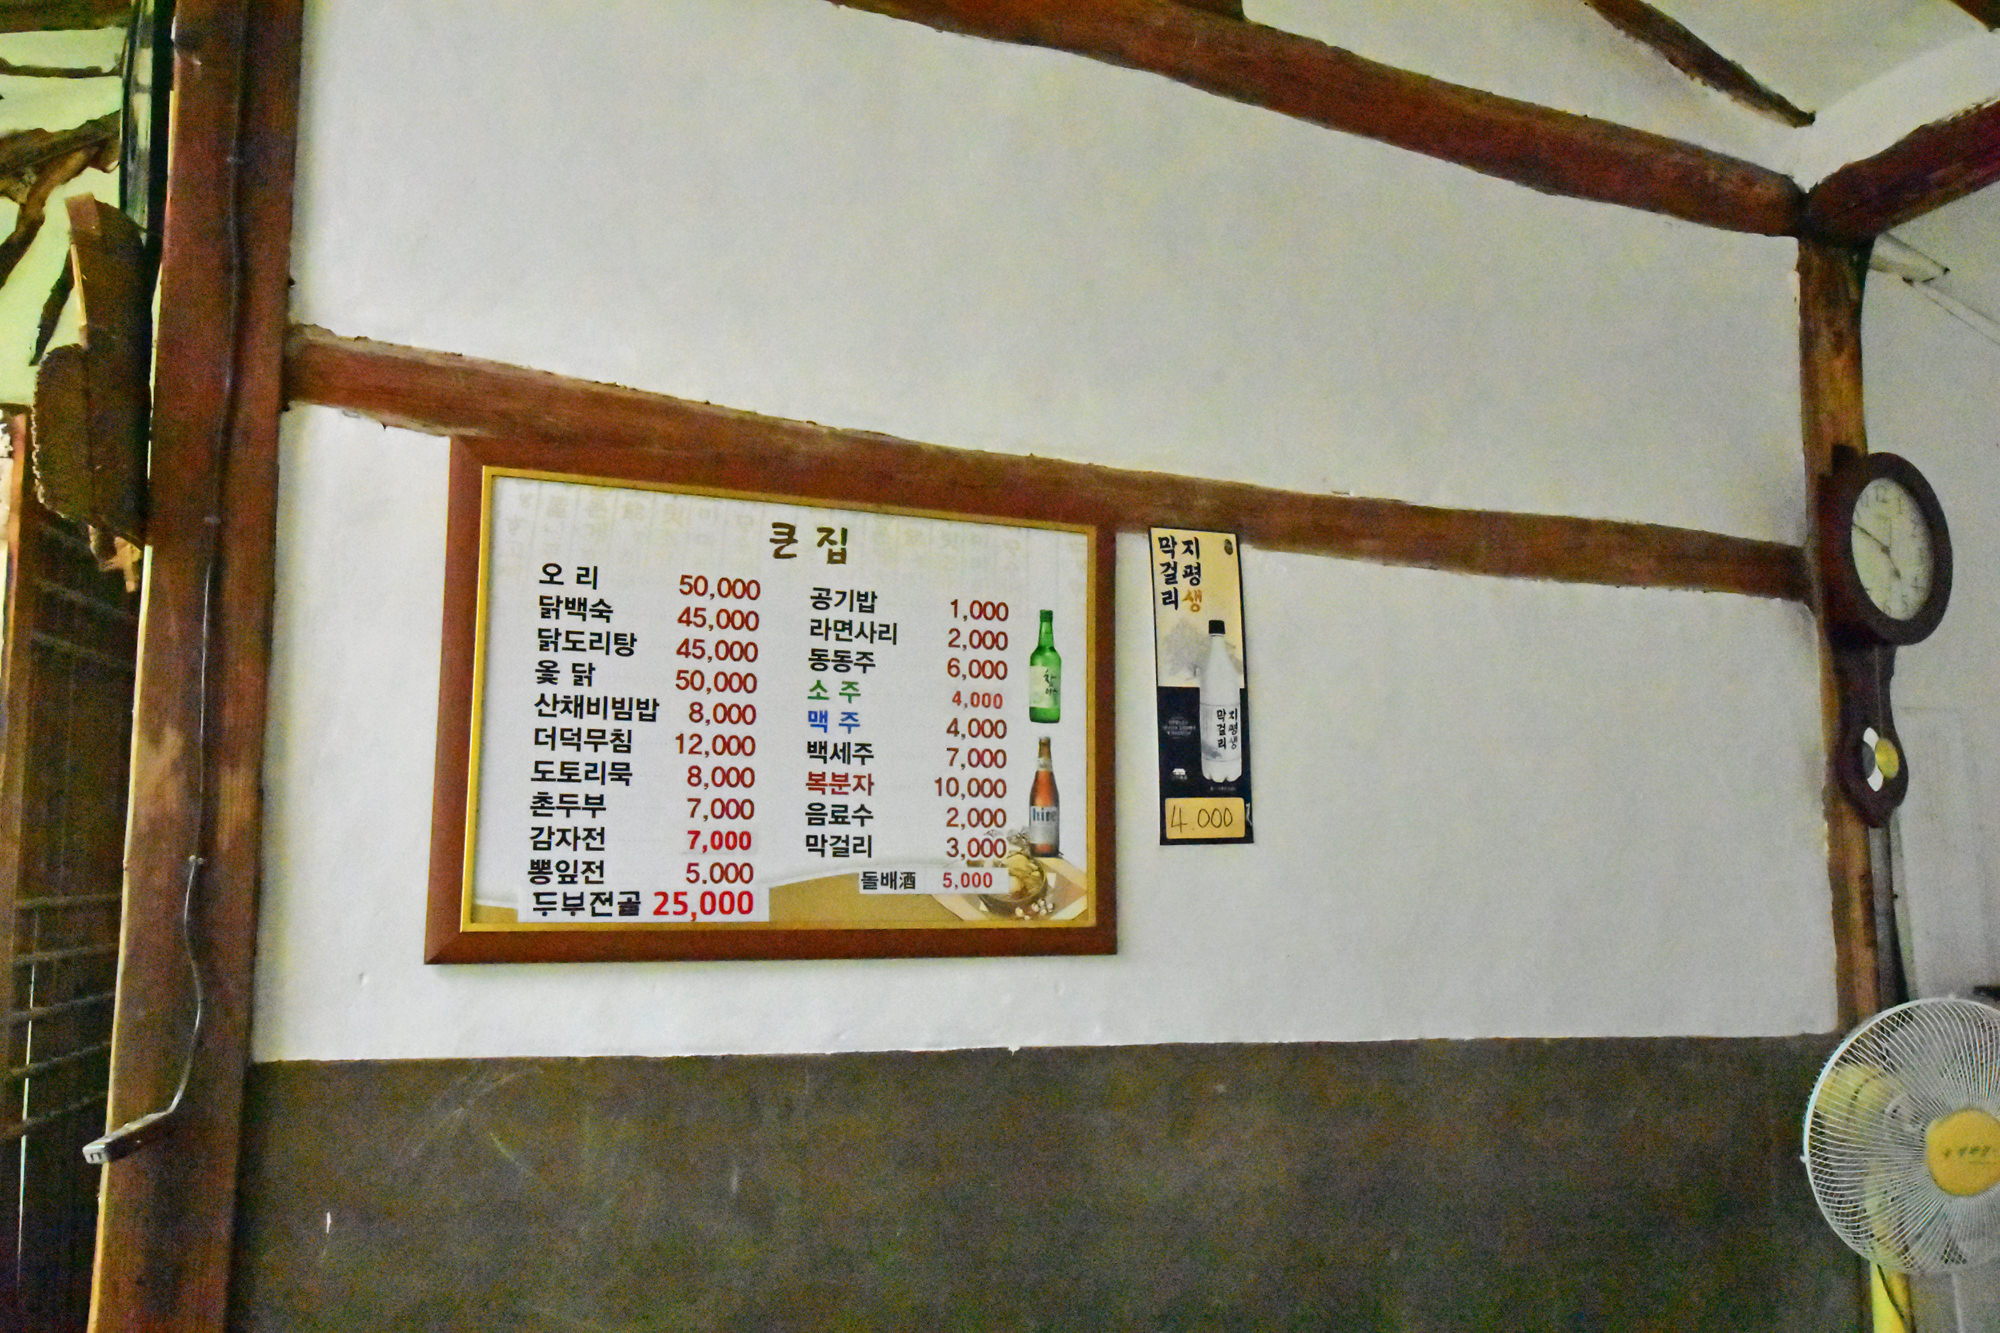 큰집
오리 50,000
닭백숙 45,000
닭도리탕 45,000
옻닭 50,000
산채비빔밥 8,000
더덕무침 12,000
도토리묵 8,000
촌두부 7,000
감자전 7,000
뽕잎전 5.000
두부전골 25,000
공기밥 1,000
라면사리 2,000
동동주 6,000
소주 4,000
맥주 4,000
백세주 7,000
복분자 10,000
음료수 2,000
막걸리 3,000
돌배酒 5,000
지평생
막걸리
지평생
막걸리
4.000